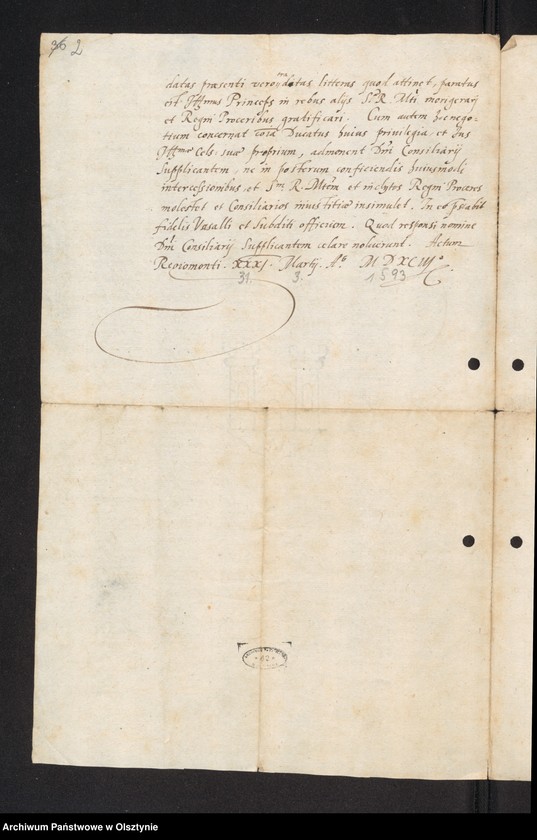 36 2
datas praesenti vero datas litteras quod attinet, paratus
est Illmus Princeps in rebus alijs S. R. Mti morigerari
et Regni Proceribus gratificari. Cum autem hoc nego-
tium concernat tota Ducatus huius privilegia et Ius
Illmae Cels: suae proprium, admonent Dni Consiliarij
Supplicantem, ne in posterum conficiendis huiusmodi
intercessionibus, et Sm R. Mtem et inclytos Regni Proceres
molestet et Consiliarios iniustitiae insimulet. In eo praestabit
fidelis Vasalli et Subditi officium. Quod responsi nomine
Dni Consiliarij Supplicantem celare noluerunt. Actum
Regiomonti. XXXI. Martij. Ao MDXCIIIo.
31. 3. 1593
Archiwum Państwowe w Olsztynie